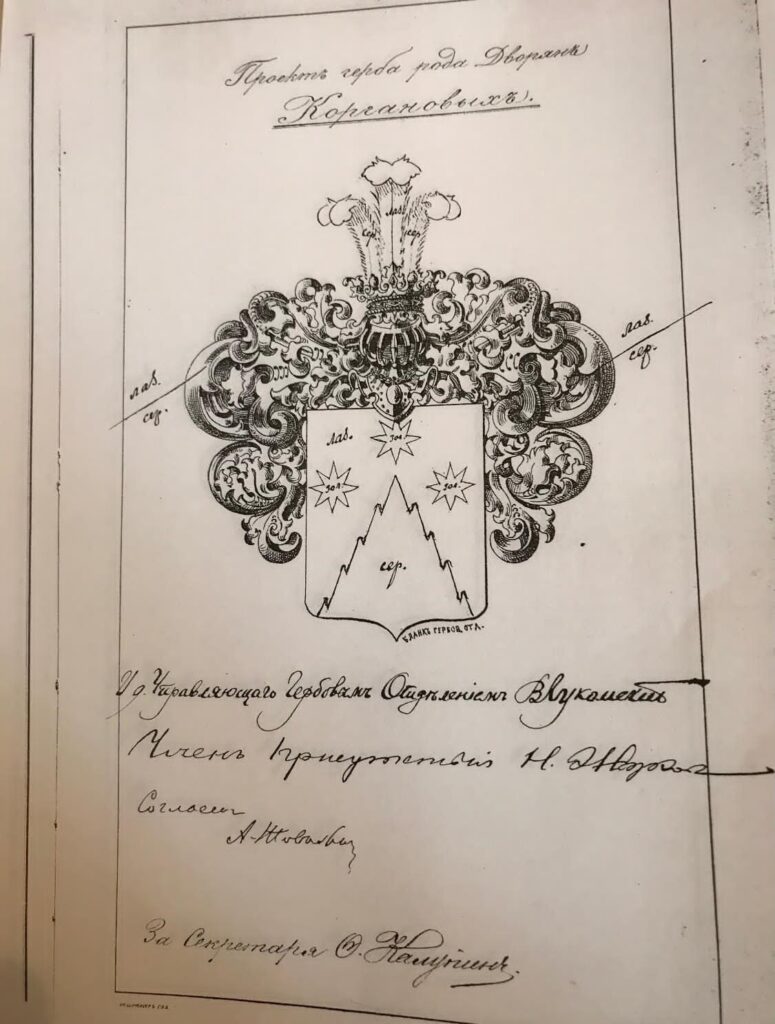 Проектъ герба рода Дворянъ
Коргановыхъ.
лаз.
сер.
сер.
лаз.
сер.
лаз.
сер.
лаз.
зол.
зол.
зол.
сер.
БЛАНКЪ ГЕРБОВ. ОТД.
И д. Управляющаго Гербовымъ Отдѣленіемъ В Лукомскій
Членъ Присутствія Н.
Согласенъ
За Секретаря Ѳ. Калугинъ.